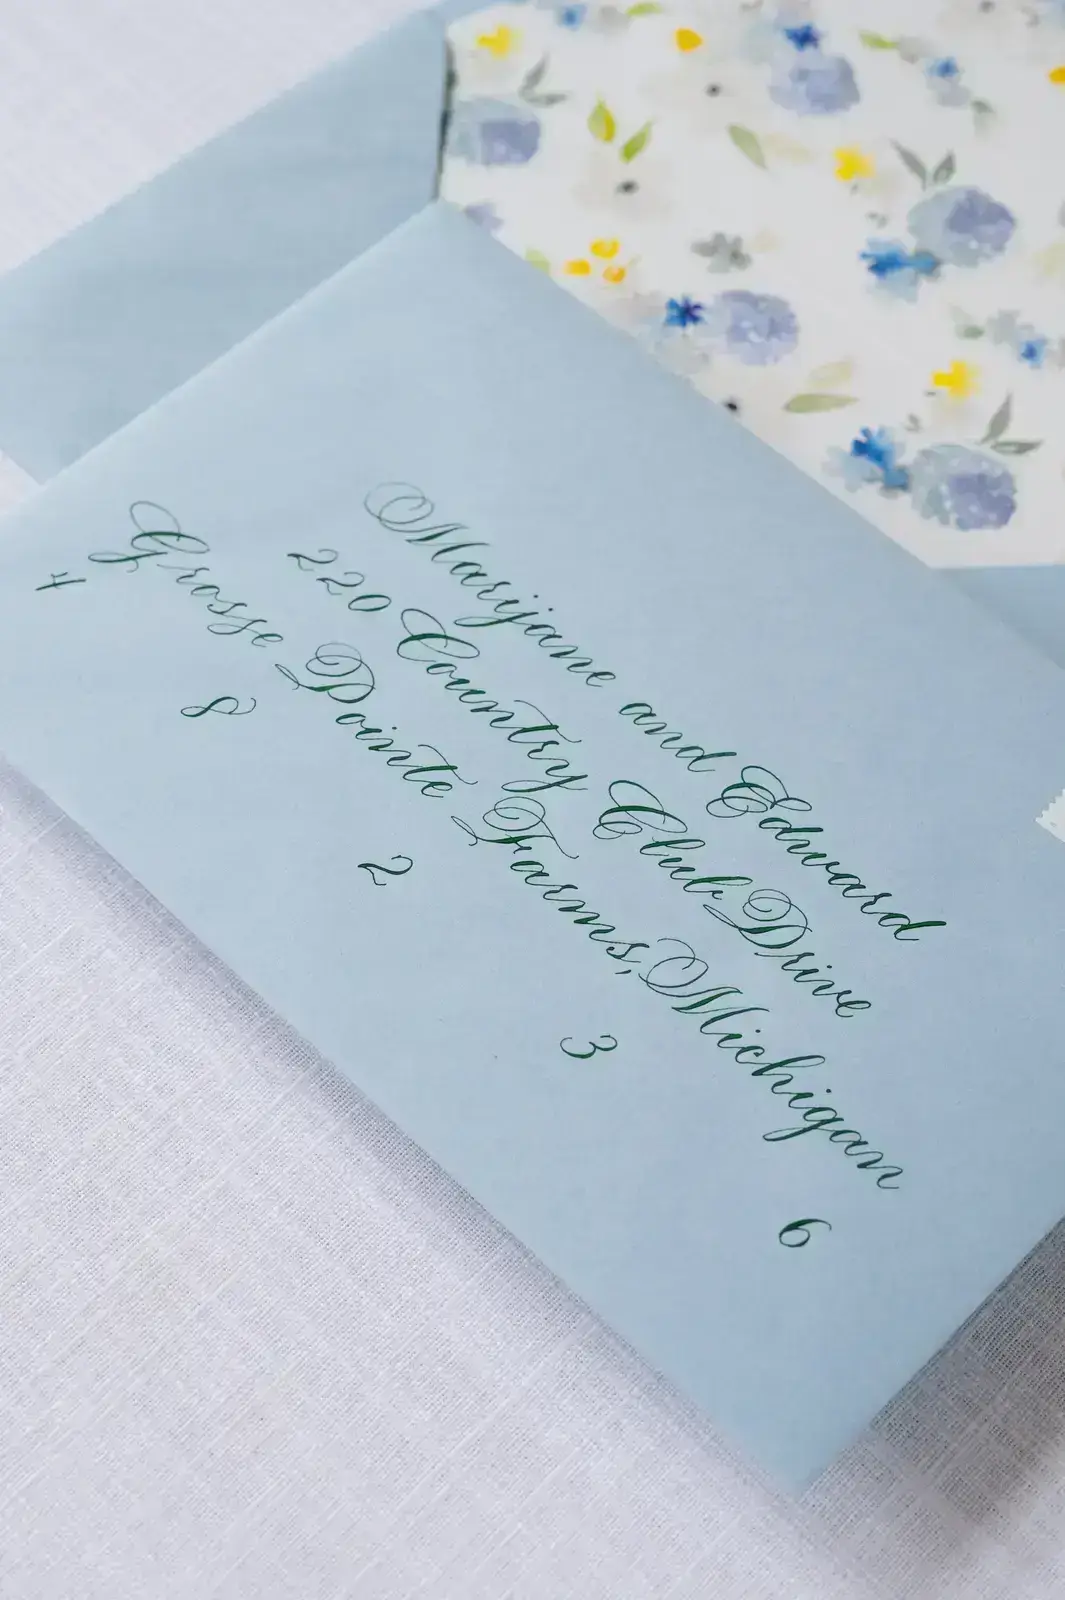 Marijane and Edward
220 Country Club Drive
Grosse Pointe Farms, Michigan
4 8 2 3 6